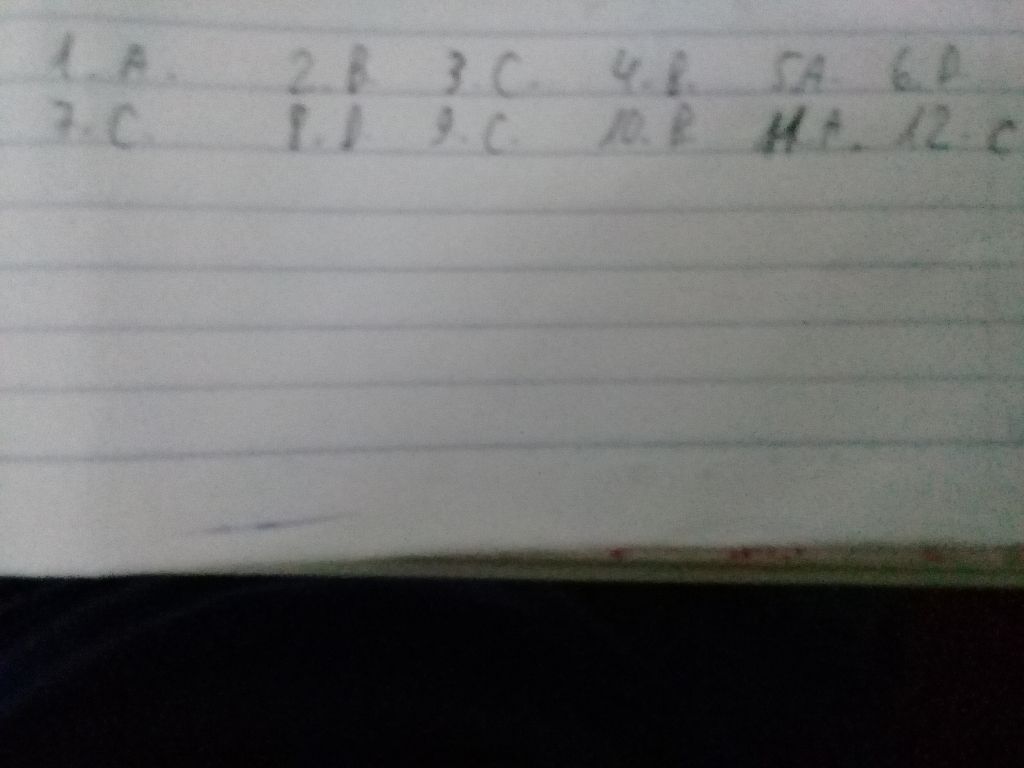 1. A. 2. B 3. C. 4. B. 5. A. 6. D
7. C. 8. D. 9. C. 10. B 11. A. 12. C